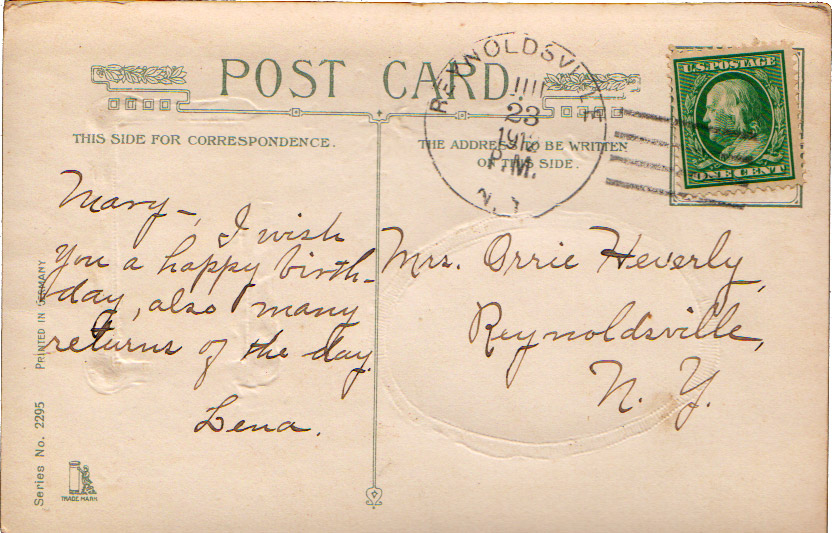 POST CARD.
THIS SIDE FOR CORRESPONDENCE.
THE ADDRESS TO BE WRITTEN
ON THIS SIDE.
REYNOLDSVILLE
23
191
P.M.
N. Y
U.S. POSTAGE
ONE CENT
Mary-, I wish
you a happy birth-
day, also many
returns of the day
Lena.
Mrs. Orrie Heverly,
Reynoldsville,
N. Y.
Series No. 2295 PRINTED IN GERMANY
TRADE MARK